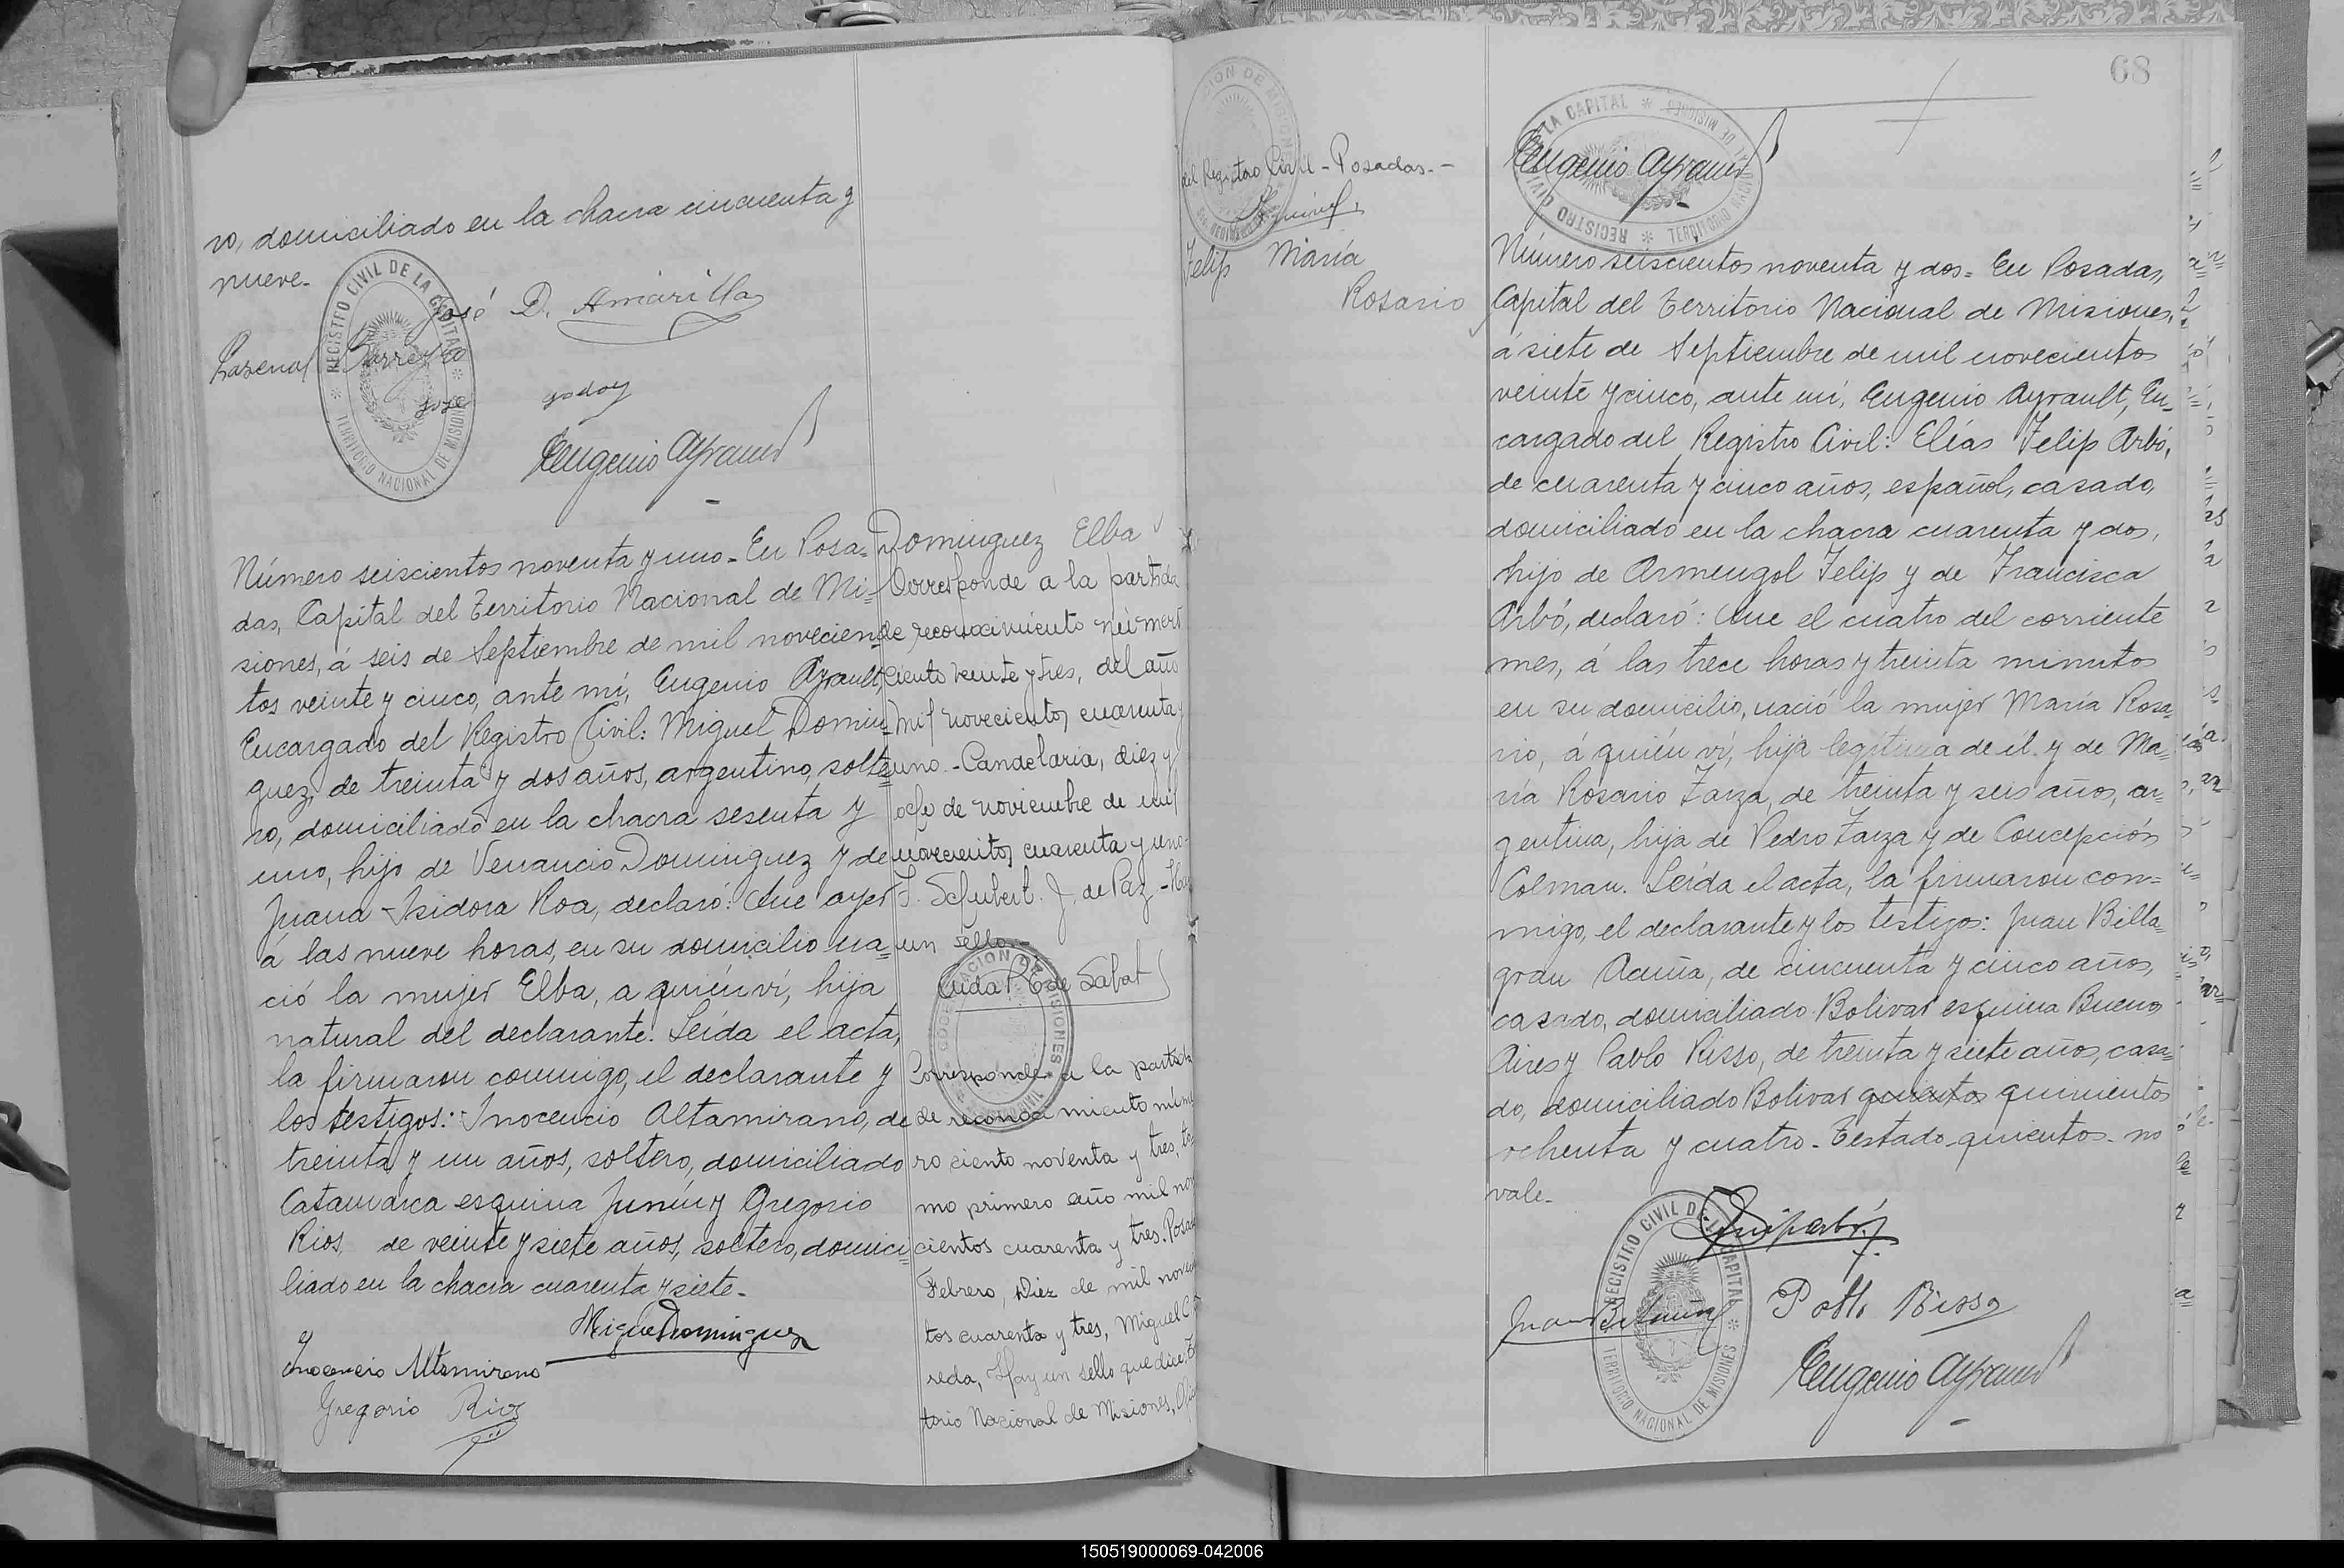 ro, domiciliado en la chacra cincuenta y
nueve.
REGISTRO CIVIL DE LA CAPITAL * TERRITORIO NACIONAL DE MISIONES *
José D. Amarilla
Barreyro
José Godoy
Eugenio Ayrault
Número seiscientos noventa y uno - En Posa=
das, Capital del Territorio Nacional de Mi=
siones, á seis de Septiembre de mil novecien=
tos veinte y cinco, ante mí, Eugenio Ayrault,
Encargado del Registro Civil: Miguel Domin=
guez, de treinta y dos años, argentino, solte=
ro, domiciliado en la chacra sesenta y
uno, hijo de Venancio Dominguez y de
Juana Isidora Roa, declaró: Que ayer
á las nueve horas, en su domicilio na=
ció la mujer Elba, a quién ví, hija
natural del declarante. Leída el acta,
la firmaron conmigo, el declarante y
los testigos: Inocencio Altamirano, de
treinta y un años, soltero, domiciliado
Catamarca esquina Junín y Gregorio
Rios, de veinte y siete años, soltero, domici=
liado en la chacra cuarenta y siete.
Miguel Dominguez
Inocencio Altamirano
Gregorio Rios
Dominguez Elba
Corresponde a la partida
de reconocimiento número
ciento veinte y tres, del año
mil novecientos cuarenta y
uno. - Candelaria, diez y
ocho de noviembre de mil
novecientos cuarenta y uno.
F. Schubert. J. de Paz. - Hay
un sello. -
GOBERNACION DE MISIONES
de Sabat
Corresponde a la partida
de reconocimiento núme
ro ciento noventa y tres, to
mo primero año mil nove
cientos cuarenta y tres. Posadas
Febrero, Diez de mil novecien
tos cuarenta y tres, Miguel C
reda, Hay un sello que dice: Te
torio Nacional de Misiones, Ofi
del Registro Civil - Posadas. -
Felip María
Rosario
68
REGISTRO CIVIL DE LA CAPITAL * TERRITORIO NACIONAL DE MISIONES *
Eugenio Ayrault
Número seiscientos noventa y dos = En Posadas,
Capital del Territorio Nacional de Misiones,
á siete de Septiembre de mil novecientos
veinte y cinco, ante mí, Eugenio Ayrault, En=
cargado del Registro Civil: Elías Felip Arbó,
de cuarenta y cinco años, español, casado,
domiciliado en la chacra cuarenta y dos,
hijo de Armengol Felip y de Francisca
Arbó, declaró: Que el cuatro del corriente
mes, á las trece horas y treinta minutos
en su domicilio, nació la mujer María Rosa=
rio, á quién ví, hija legítima de él y de Ma=
ría Rosario Zarza, de treinta y seis años, ar=
gentina, hija de Pedro Zarza y de Concepción
Colman. Leída el acta, la firmaron con=
migo, el declarante y los testigos: Juan Billa=
gran Acuña, de cincuenta y cinco años,
casado, domiciliado Bolivar esquina Bueno
Aires y Pablo Risso, de treinta y siete años, casa=
do, domiciliado Bolivar quientos quinientos
ochenta y cuatro - Testado - quientos - no
vale.
REGISTRO CIVIL DE LA CAPITAL * TERRITORIO NACIONAL DE MISIONES *
Pablo Risso
Eugenio Ayrault
150519000069-042006